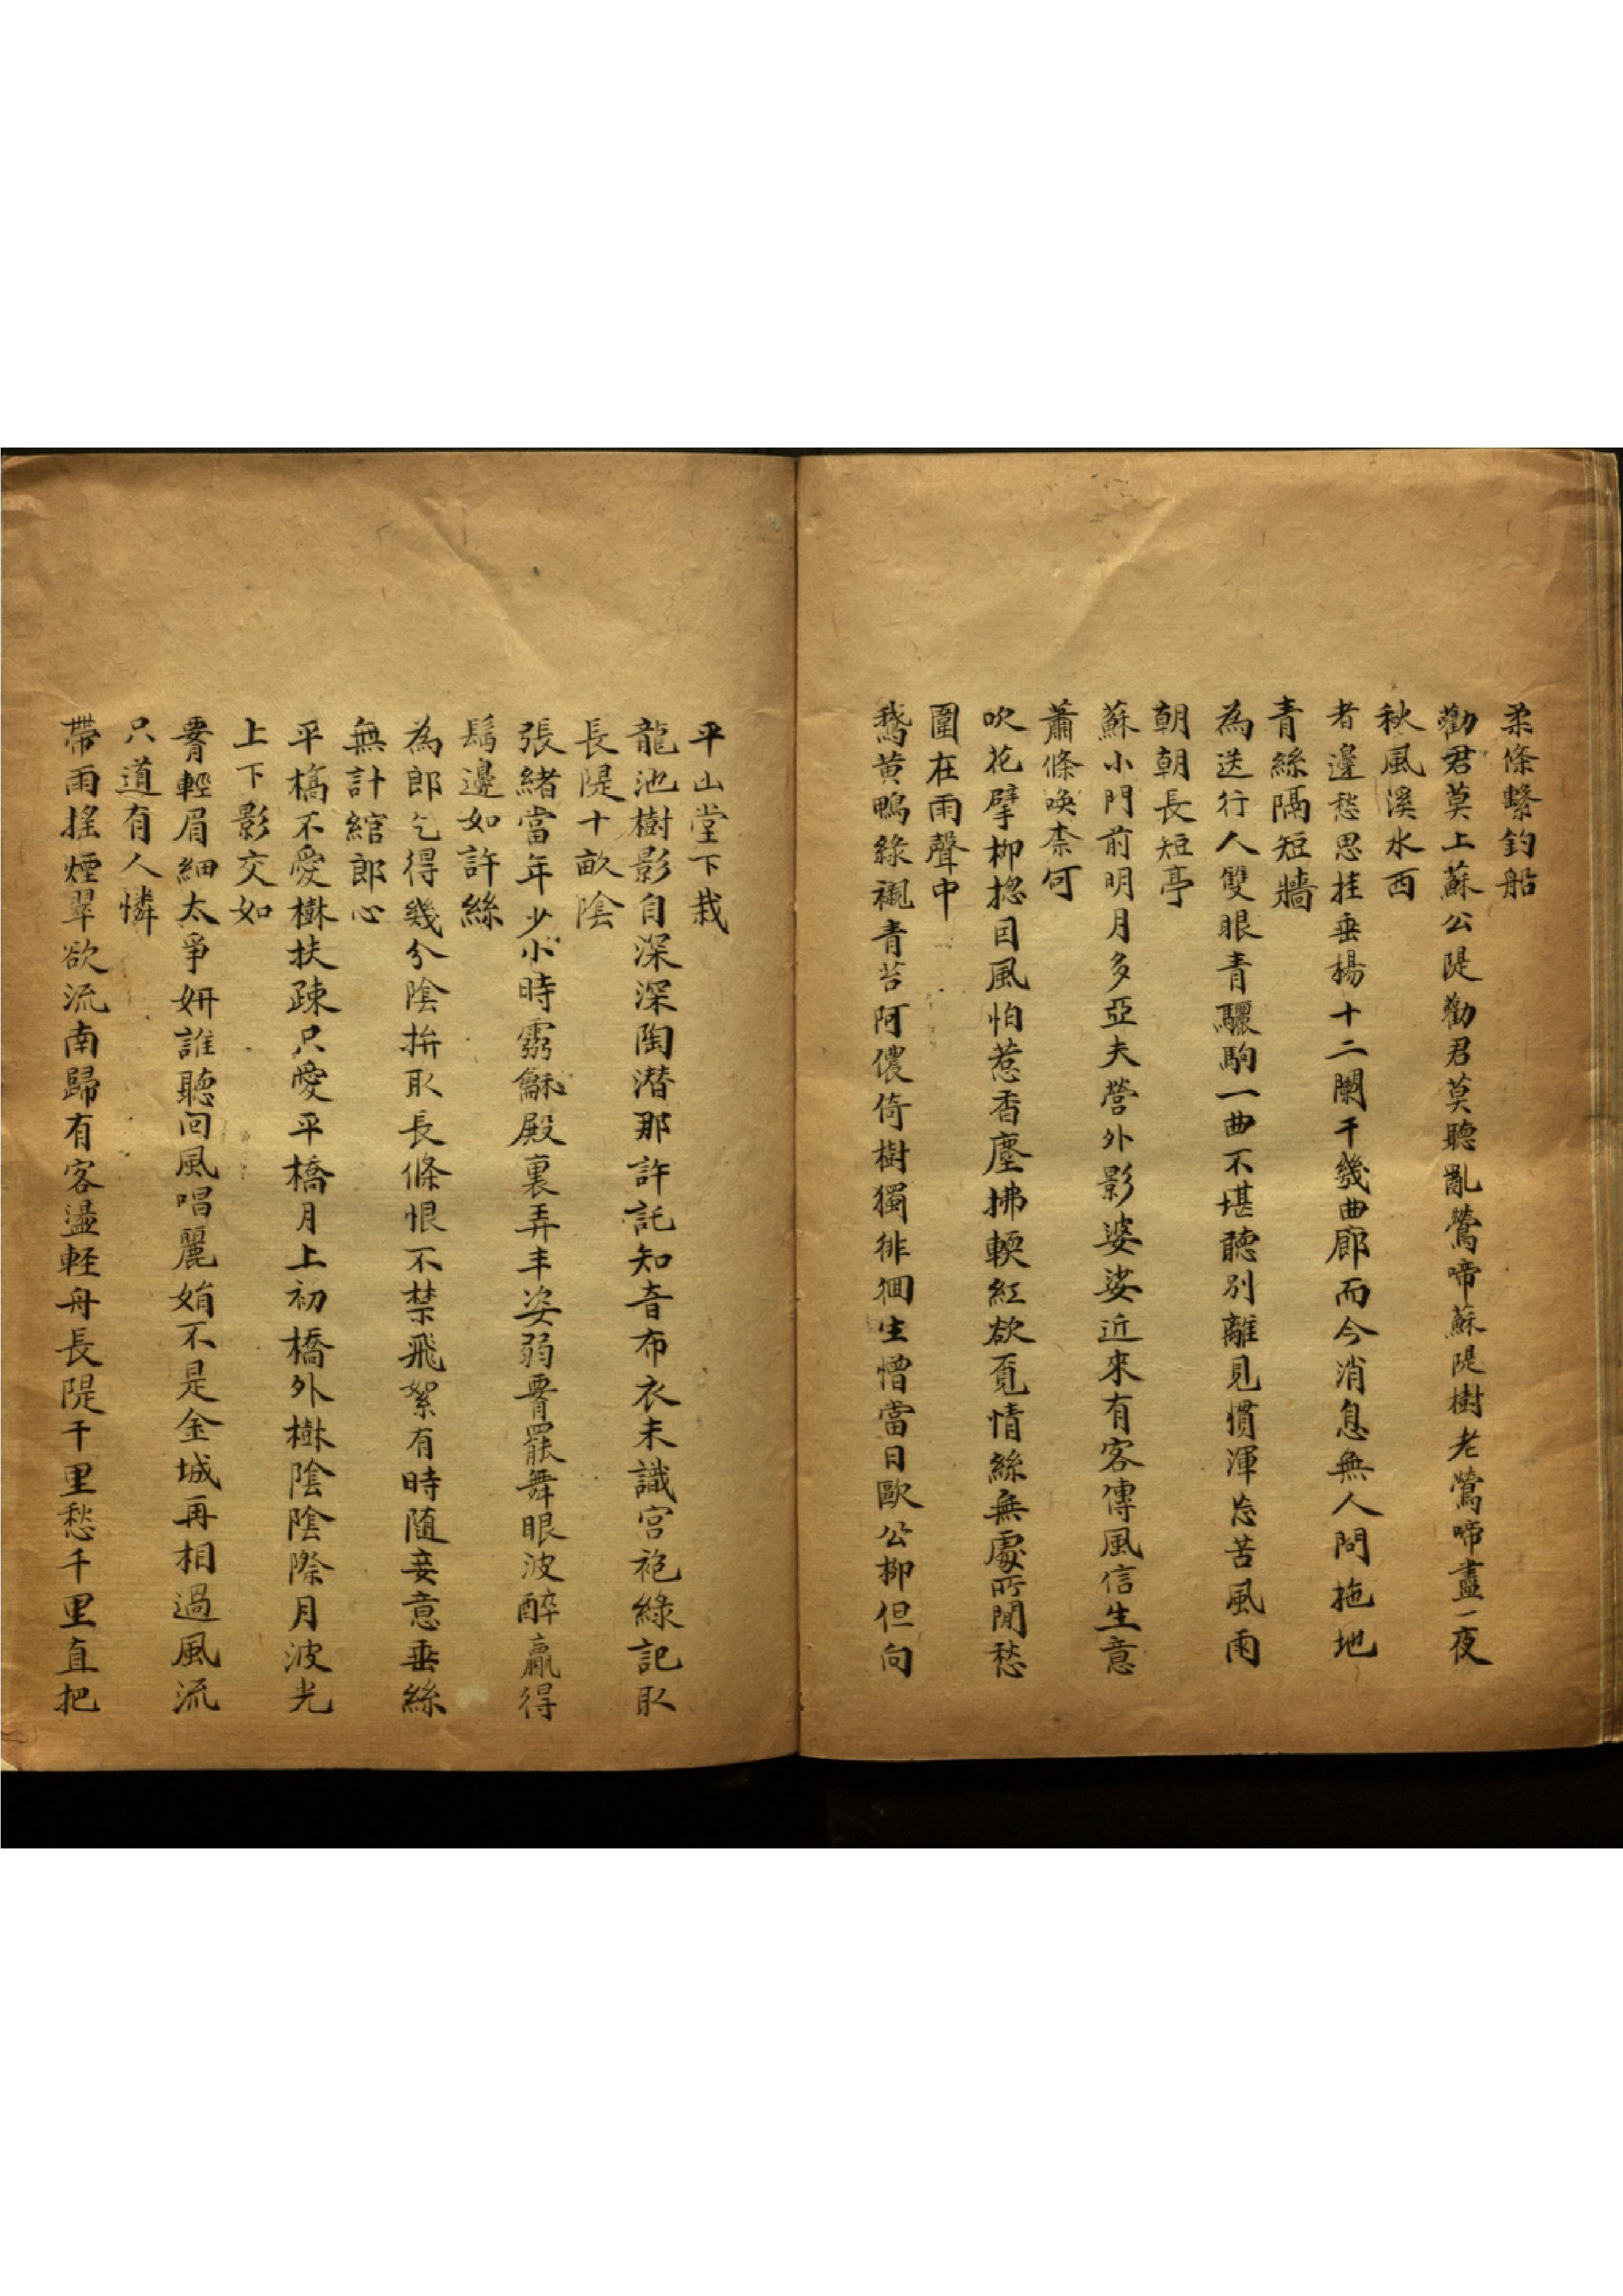 柔條繫釣船
勸君莫上蘇公隄勸君莫聽亂鶯啼蘇隄樹老鶯啼盡一夜
秋風溪水西
者邊愁思挂垂楊十二闌干幾曲廊而今消息無人問拖地
青絲隔短牆
為送行人雙眼青驪駒一曲不堪聽別離見慣渾忘苦風雨
朝朝長短亭
蘇小門前明月多亞夫營外影婆娑近來有客傳風信生意
蕭條喚柰何
吹花擘柳揔因風怕惹香塵拂輭紅欲覓情絲無處所閒愁
圍在雨聲中
鵞黄鴨綠襯青苔阿儂倚樹獨徘徊生憎當日歐公柳但向
平山堂下栽
龍池樹影自深深陶潛那許託知音布衣未識宮袍綠記取
長隄十畝陰
張緒當年少小時靈龢殿裏弄丰姿弱罷舞眼波醉贏得
鬅邊如許絲
為郎乞得幾分陰拚取長條恨不禁飛絮有時隨妾意垂絲
無計綰郎心
平橋不愛樹扶疎只愛平橋月上初橋外樹陰陰際月波光
上下影交如
輕眉細太爭妍誰聽回風唱麗娟不是金城再相過風流
只道有人憐
帶雨搖煙翠欲流南歸有客盪輕舟長隄千里愁千里直把